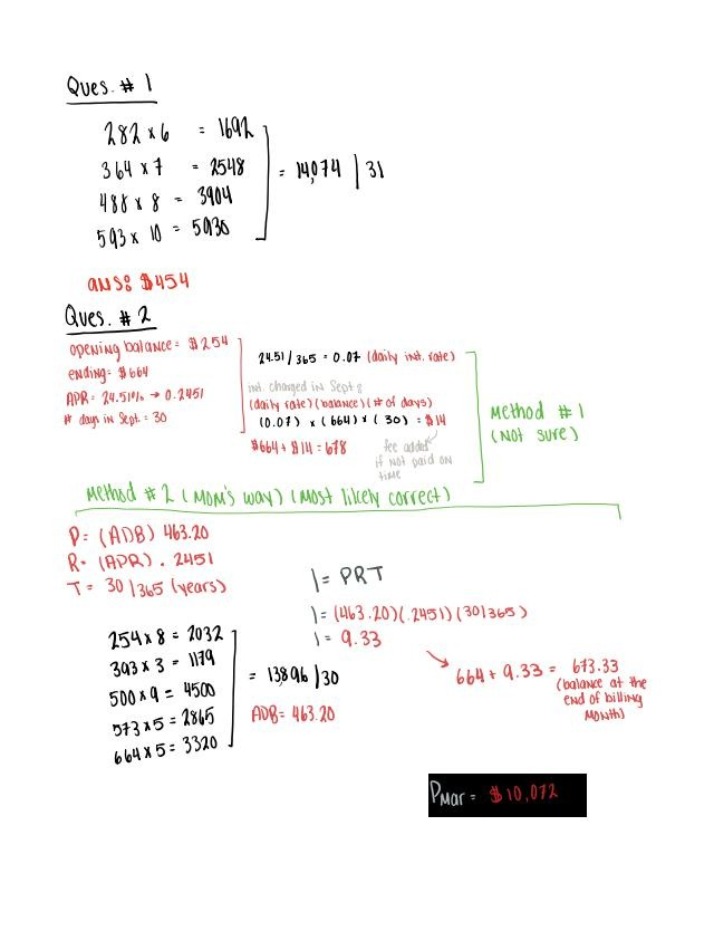 Ques. # 1
282 x 6 = 1692
364 x 7 = 2548
488 x 8 = 3904
593 x 10 = 5930
= 14,074 | 31
ans: $454
Ques. # 2
opening balance = $254
ending = $664
APR = 24.51% → 0.2451
# days in Sept. = 30
24.51/365 = 0.07 (daily int. rate)
int. charged in Sept:
(daily rate)(balance)(# of days)
(0.07) x (664) x (30) = $14
$664 + $14 = 678
fee added
if not paid on
time
Method #1
(Not sure)
Method #2 (Mom's way) (Most likely correct)
P = (ADB) 463.20
R = (APR) .2451
T = 30/365 (years)
I = PRT
I = (463.20)(.2451)(30/365)
I = 9.33
664 + 9.33 = 673.33
(balance at the
end of billing
month)
254 x 8 = 2032
393 x 3 = 1179
500 x 9 = 4500
573 x 5 = 2865
664 x 5 = 3320
= 13,896 / 30
ADB = 463.20
PMar = $10,072